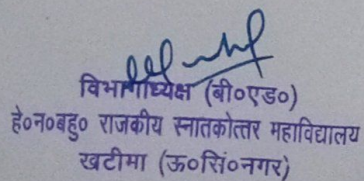 विभागाध्यक्ष (बी०एड०)
हे०न०बहु० राजकीय स्नातकोत्तर महाविद्यालय
खटीमा (ऊ०सिं०नगर)